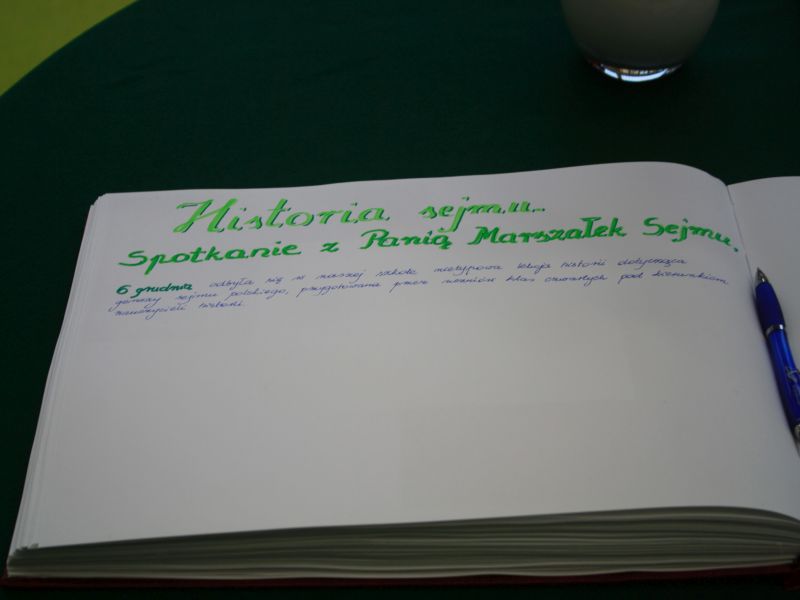 Historia sejmu.
Spotkanie z Panią Marszałek Sejmu.
6 grudnia odbyła się w naszej szkole nietypowa lekcja historii dotycząca
genezy sejmu polskiego, przygotowana przez uczniów klas czwartych pod kierunkiem
nauczycieli historii.